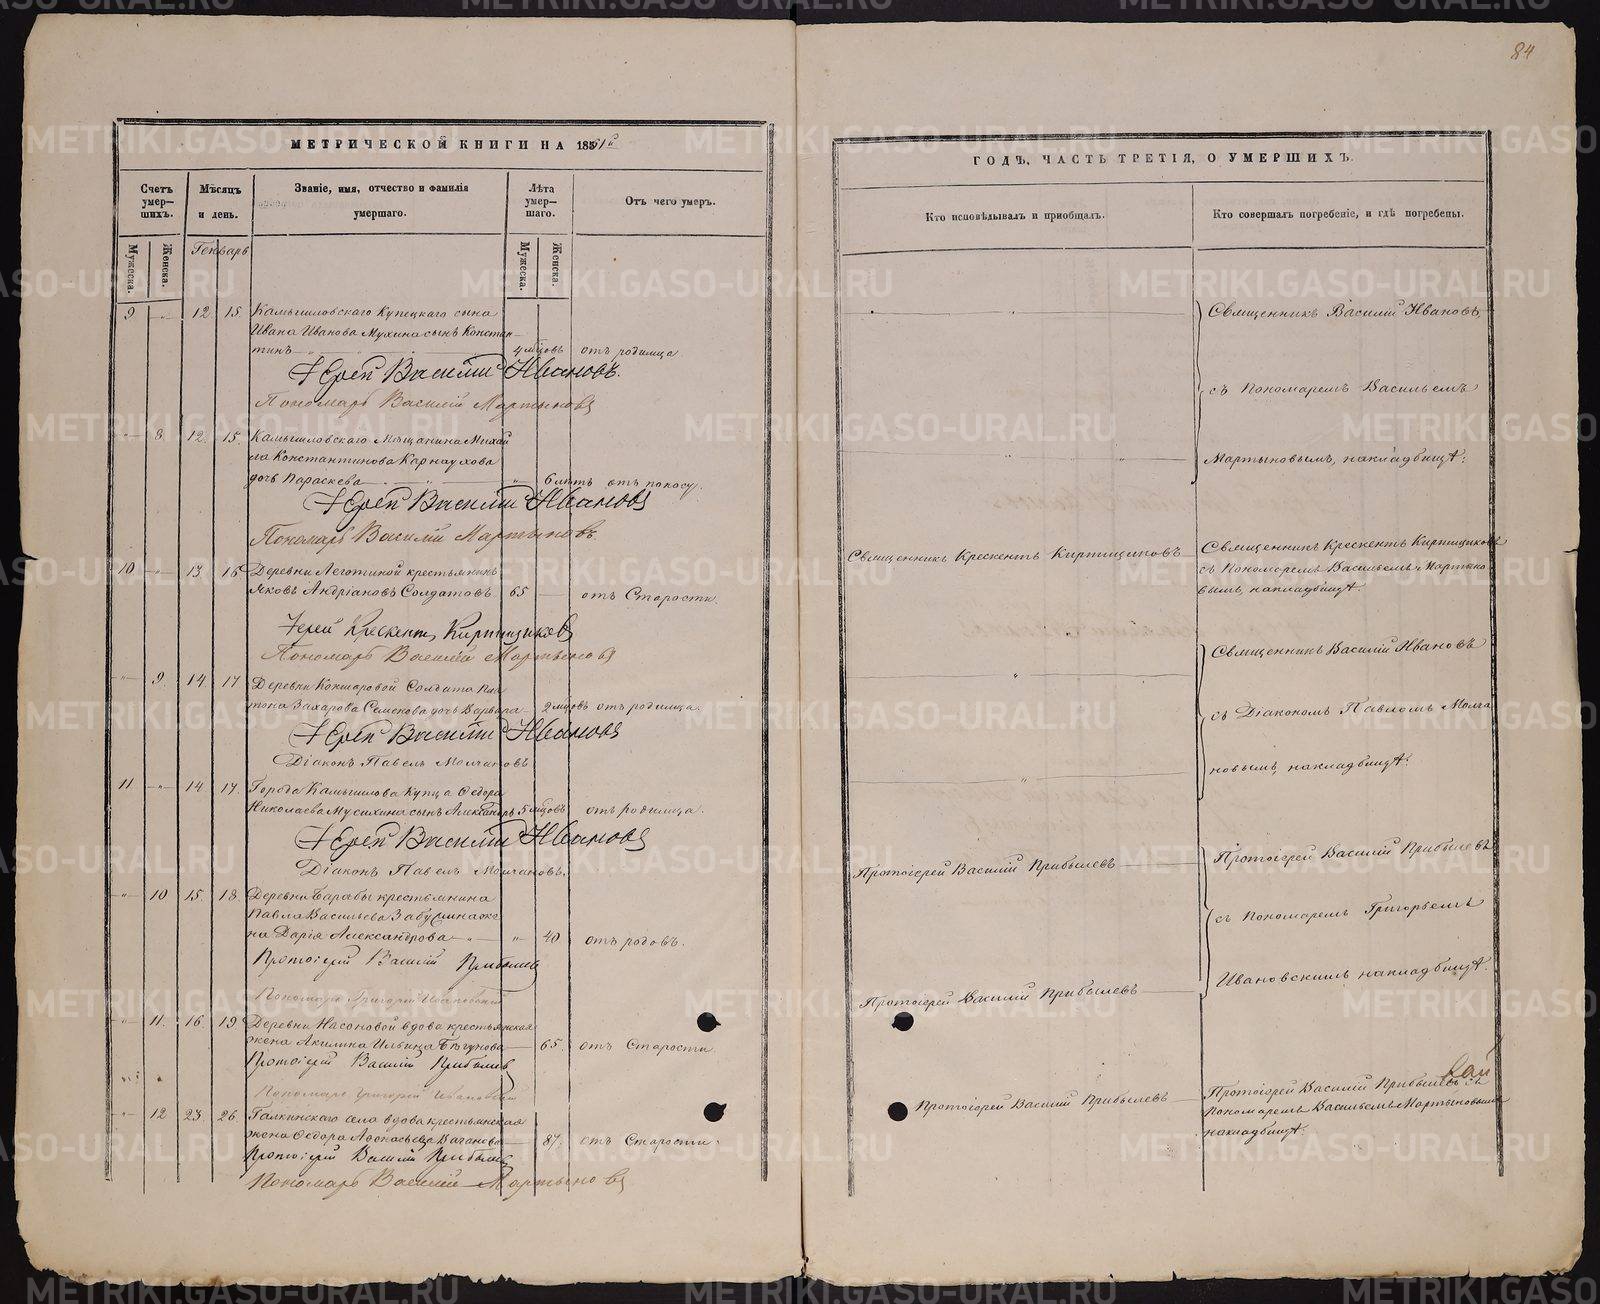 84
МЕТРИЧЕСКОЙ КНИГИ НА 1861й
Счетъ умер—шихъ.
Мѣсяцъ и день.
Званіе, имя, отчество и фамилія умершаго.
Лѣта умер—шаго.
Отъ чего умеръ.
Мужеска.
Женска.
Генварь
Мужеска.
Женска.
9 „ 12. 15. Камышловскаго Купецкаго сына
Ивана Иванова Мухина сынъ Констан-
тинъ 4 мѣсцовъ отъ родимца.
Іерей Василій Ивановъ.
Пономарь Василій Мартыновъ
„ 8. 12. 15. Камышловскаго Мѣщанина Михаи
ла Константинова Карнаухова
дочь Параскева „ 6 лѣтъ отъ поносу.
Іерей Василій Ивановъ
Пономарь Василій Мартыновъ
10 „ 13 16 Деревни Леготиной крестьянинъ
Яковъ Андріановъ Солдатовъ. 65 — отъ Старости.
Іерей Крескентъ Кирпищиковъ
Пономарь Василій Мартыновъ
„ 9. 14. 17 Деревни Кокшаровой Солдата Пла
тона Захарова Семенова дочь Варвара 2 мѣсцовъ отъ родимца.
Іерей Василій Ивановъ
Діаконъ Павелъ Молчановъ
11 „ 14 17. Города Камышлова Купца Ѳедора
Николаева Мусихина сынъ Александръ 5 мѣсцовъ отъ Родимца.
Іерей Василій Ивановъ
Діаконъ Павелъ Молчановъ.
„ 10 15. 18. Деревни Барабы крестьянина
Павла Васильева Забуслина же
на Дарія Александрова „ 40 отъ родовъ.
Протоіерей Василій Прибылев
Пономарь Григорій Ивановскій
„ 11. 16. 19. Деревни Насоновой вдова крестьянская
жена Акилина Ильина Бѣгунова 65. отъ Старости
Протоіерей Василій Прибылев
Пономарь Григорій Ивановскій
„ 12 23. 26. Галкинскаго села вдова крестьянская
жена Ѳедора Аѳонасьева Ваганова 87. отъ Старости.
Протоіерей Василій Прибылев
Пономарь Василій Мартыновъ
ГОДЪ, ЧАСТЬ ТРЕТІЯ, О УМЕРШИХЪ.
Кто исповѣдывалъ и пріобщалъ.
Кто совершалъ погребеніе, и гдѣ погребены.
Священникъ Василій Ивановъ,
съ Пономаремъ Васильемъ
Мартыновымъ, накладбищѣ.
Священникъ Крескентъ Кирпищиковъ
Священникъ Крескентъ Кирпищиковъ
съ Пономаремъ Васильемъ Мартыно
вымъ, накладбищѣ.
Священникъ Василій Ивановъ
съ Діакономъ Павломъ Молча
новымъ, накладбищѣ.
Протоіерей Василій Прибылевъ
Протоіерей Василій Прибылевъ
съ Пономаремъ Григорьемъ
Ивановскимъ накладбищѣ.
Протоіерей Василій Прибылевъ
Протоіерей Василій Прибылевъ
Протоіерей Василій Прибылевъ съ
Пономаремъ Васильемъ Мартыновымъ
накладбищѣ.